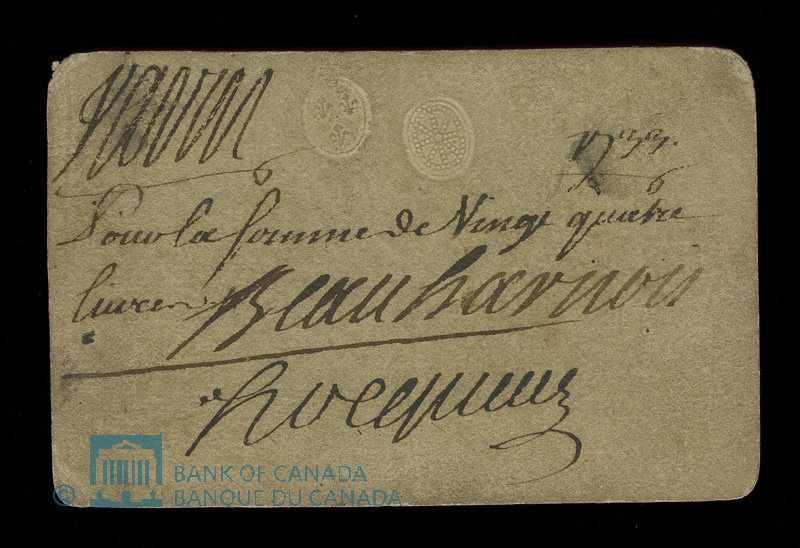 Varin
1733.
Pour la somme de Vingt quatre
livres Beauharnois
Hocquart
© BANK OF CANADA
BANQUE DU CANADA